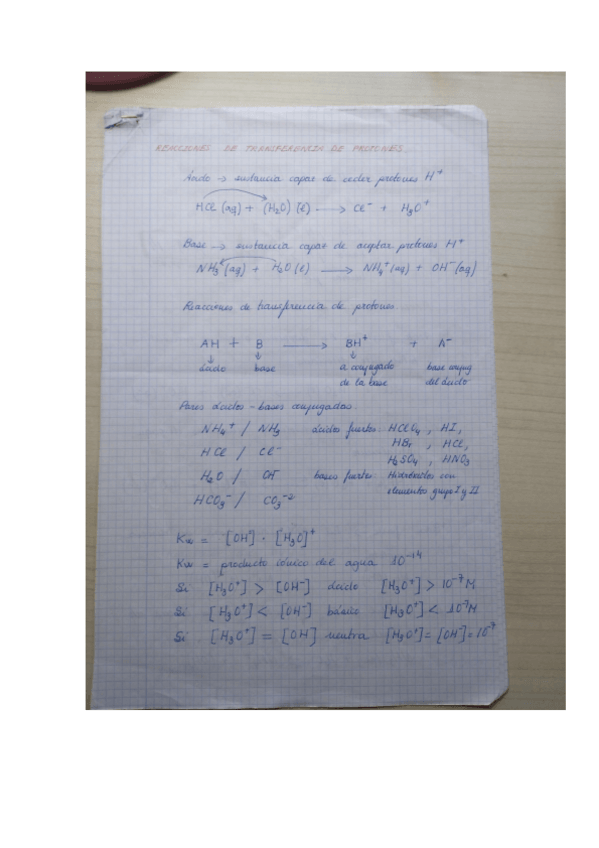 REACCIONES DE TRANSFERENCIA DE PROTONES.
Ácido → sustancia capaz de ceder protones H⁺
HCl (aq) + (H₂O) (l) → Cl⁻ + H₃O⁺
Base → sustancia capaz de aceptar protones H⁺
NH₃ (aq) + H₂O (l) → NH₄⁺ (aq) + OH⁻ (aq)
Reacciones de transferencia de protones.
AH + B → BH⁺ + A⁻
↓ ↓ ↓
ácido base a conjugado base conjug
de la base del ácido
Pares ácidos - bases conjugadas.
NH₄⁺ / NH₃ ácidos fuertes: HClO₄, HI,
HCl / Cl⁻ HBr, HCl,
H₂SO₄, HNO₃
H₂O / OH⁻ bases fuertes: Hidróxidos con
elementos grupo I y II
HCO₃⁻ / CO₃⁻²
Kw = [OH⁻] · [H₃O]⁺
Kw = producto iónico del agua 10⁻¹⁴
Si [H₃O⁺] > [OH⁻] ácido [H₃O⁺] > 10⁻⁷ M
Si [H₃O⁺] < [OH⁻] básico [H₃O⁺] < 10⁻⁷ M
Si [H₃O⁺] = [OH] neutra [H₃O⁺] = [OH⁻] = 10⁻⁷